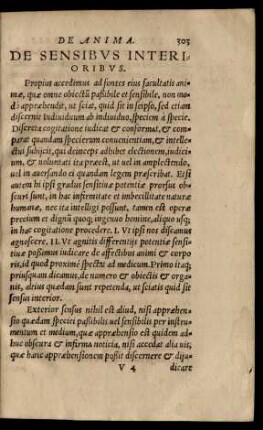 DE ANIMA. 303
DE SENSIBVS INTERI-
ORIBVS.
Propius accedimus ad fontes eius facultatis ani-
mæ, quæ omne obiectũ pasibile et sensibile, non mo-
dò appræhendit, ut sciat, quid sit in seipso, sed etiam
discernit indiuiduum ab indiuiduo, speciem à specie.
Discreta cogitatione iudicat & conformat, & com-
parat quandam specierum conuenientiam, & intel-
lectui subijcit, qui deinceps adhibet electionem, iudici-
um, & uoluntati ita præest, ut uel in amplectendo,
uel in auersando ei quandam legem præscribat. Etsi
autem hi ipsi gradus sensitiuæ potentiæ prorsus ob-
scuri sunt, in hac infirmitate et imbecillitate naturæ
humanæ, nec ita intelligi possunt, tamen est operæ
precium et dignũ quoq; ingenuo homine, aliquo usq;
in hac cogitatione procedere. I. Vt ipsi nos discamus
agnoscere. II. Vt agnitis differentijs potentiæ sensi-
tiuæ possimus iudicare de affectibus animi & corpo
ris, id quod proximè spectat ad medicum. Primo itaq;
priusquam dicamus, de numero & obiectis & orga-
nis, altius quædam sunt repetenda, ut sciatis quid sit
sensus interior.
Exterior sensus nihil est aliud, nisi appræhen-
sio quædam speciei pasibilis uel sensibilis per instru-
mentum et medium, quæ appræhensio est quidem ad-
huc obscura & infirma noticia, nisi accedat alia uis,
quæ hanc appræhensionem possit discernere & diju-
V 4 dicare